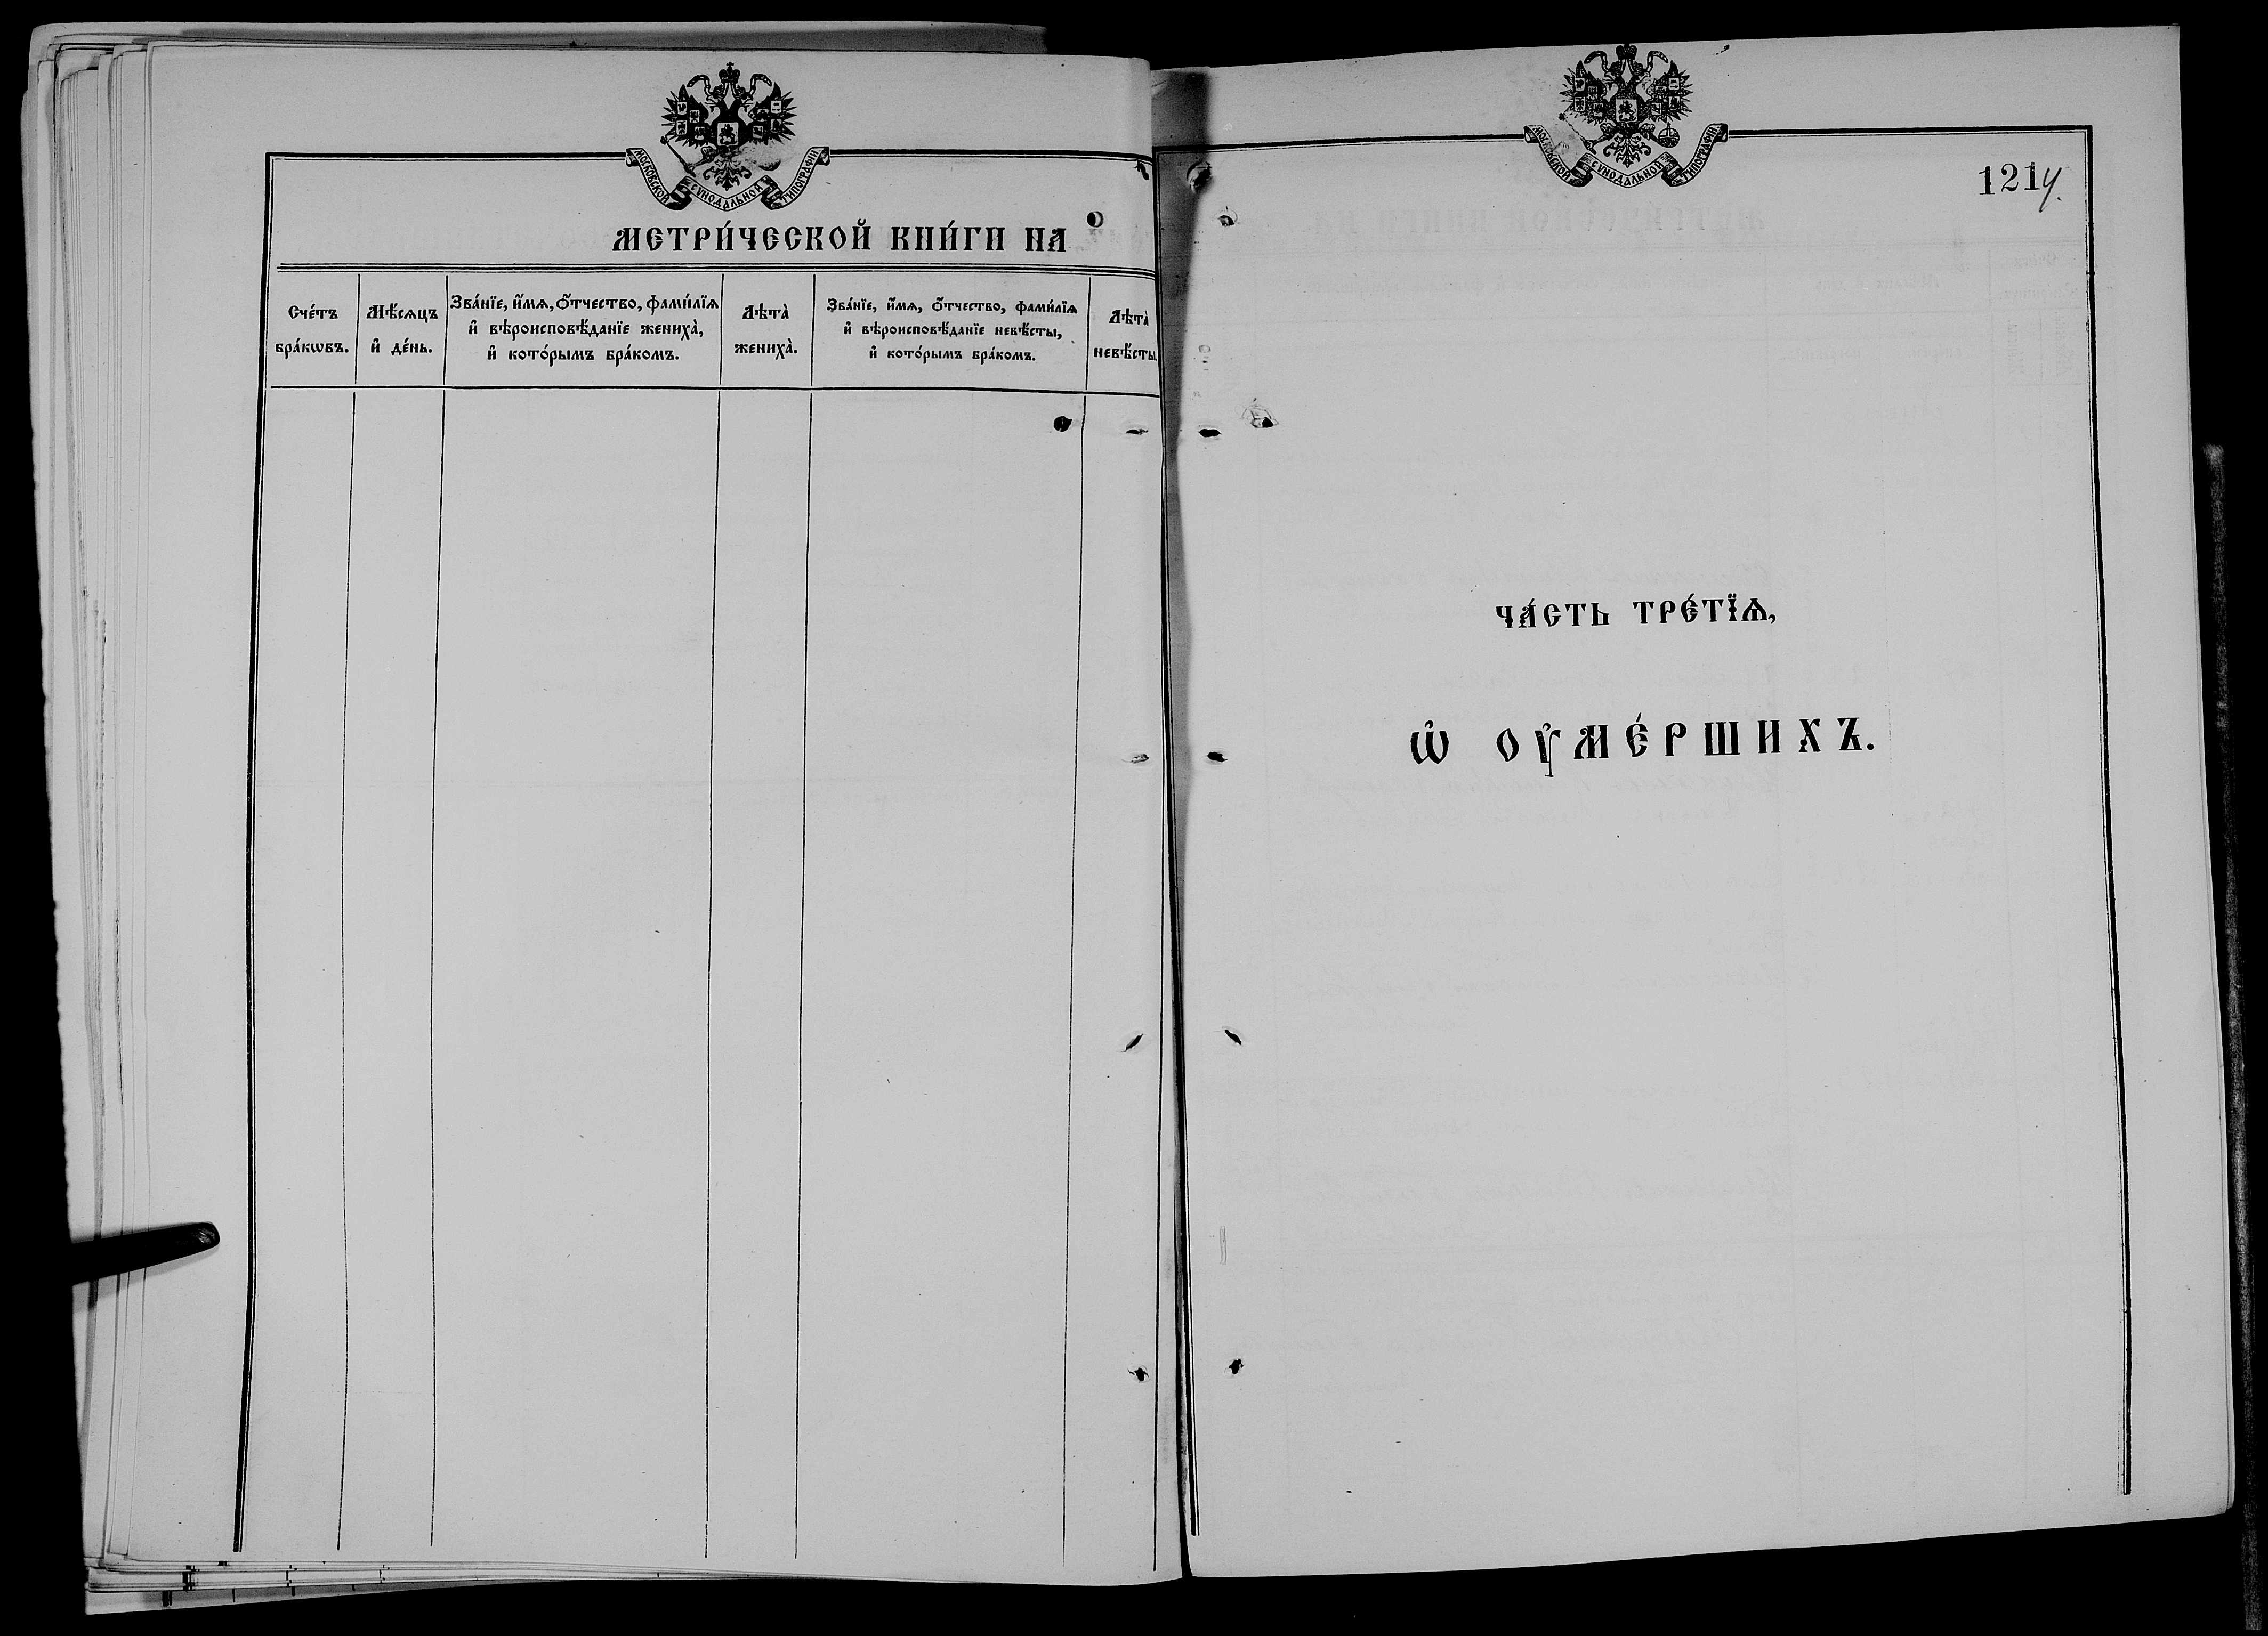 МОСКОВСКОЙ СѴНОДАЛЬНОЙ ТИПОГРАФІИ
МЕТРИ́ЧЕСКОЙ КНИ́ГИ НА
Сче́тъ бра́кѡвъ.
Мѣ́сѧцъ и҆ де́нь.
Зва́нїе, и҆́мѧ, ѻ҆́тчество, фами́лїѧ
и҆ вѣроисповѣ́данїе жениха̀,
и҆ кото́рымъ бра́комъ.
Лѣта̀ жениха̀.
Зва́нїе, и҆́мѧ, ѻ҆́тчество, фами́лїѧ
и҆ вѣроисповѣ́данїе невѣ́сты,
и҆ кото́рымъ бра́комъ.
Лѣта̀ невѣ́сты.
МОСКОВСКОЙ СѴНОДАЛЬНОЙ ТИПОГРАФІИ
121
ЧА́СТЬ ТРЕ́ТЇѦ,
Ѡ҆ ОУ҆МЕ́РШИХЪ.